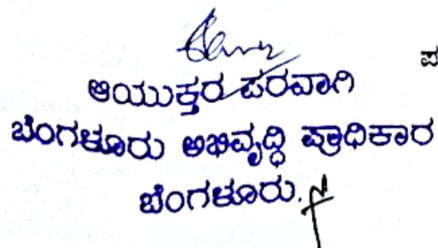 ಆಯುಕ್ತರ ಪರವಾಗಿ
ಬೆಂಗಳೂರು ಅಭಿವೃದ್ಧಿ ಪ್ರಾಧಿಕಾರ
ಬೆಂಗಳೂರು.